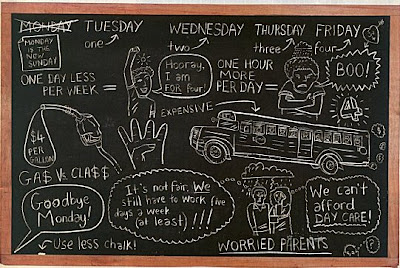 MONDAY TUESDAY WEDNESDAY THURSDAY FRIDAY
one two three four
MONDAY
IS THE
NEW
SUNDAY
ONE DAY LESS
PER WEEK =
Hooray,
I am
FOR four!
ONE HOUR
MORE
PER DAY =
BOO!
EXPENSIVE
4
$4
PER
GALLON
GA$ Vs. CLA$$
Goodbye
Monday!
Use less chalk!
It's not fair. We
still have to work five
days a week
(at least)!!!
We can't
afford
DAY CARE!
WORRIED PARENTS